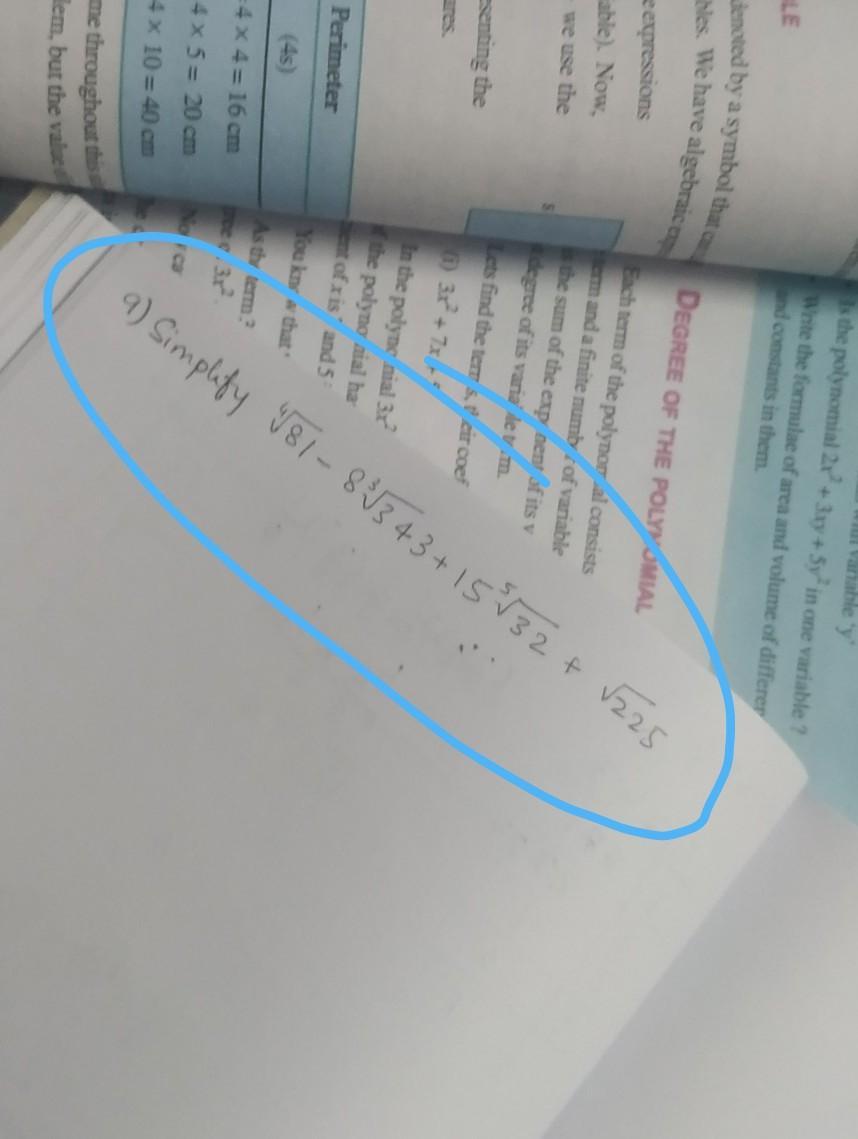 LE
denoted by a symbol that can
bles. We have algebraic exp
e expressions
able). Now,
we use the
esenting the
ares.
Perimeter
(4s)
4 × 4 = 16 cm
4 × 5 = 20 cm
4 × 10 = 40 cm
me throughout this
lem, but the value
Is the polynomial 2x² + 3xy + 5y² in one variable ?
Write the formulae of area and volume of differen
and constants in them.
DEGREE OF THE POLYNOMIAL
Each term of the polynomial consists
term and a finite number of variable
is the sum of the exponent of its v
degree of its variable term.
Lets find the terms, their coef
(i) 3x² + 7x +
In the polynomial 3x²
of the polynomial ha
ent of x is and 5
You know that
As the term ?
3x².
a) Simplify ⁴√81 - 8 ³√343 + 15 ⁵√32 + √225